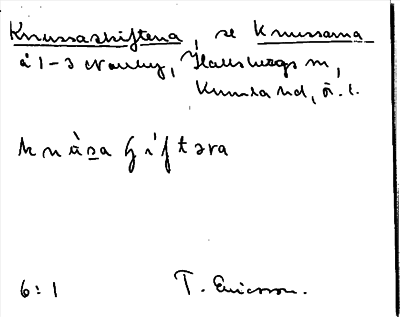 Knussaskiftena, se Knussarna
å 1-3 Norrby, Hallsbergs m,
Kumla hd, Ö.l.
knùsa ʃiftəra
6:1 T. Ericsson.